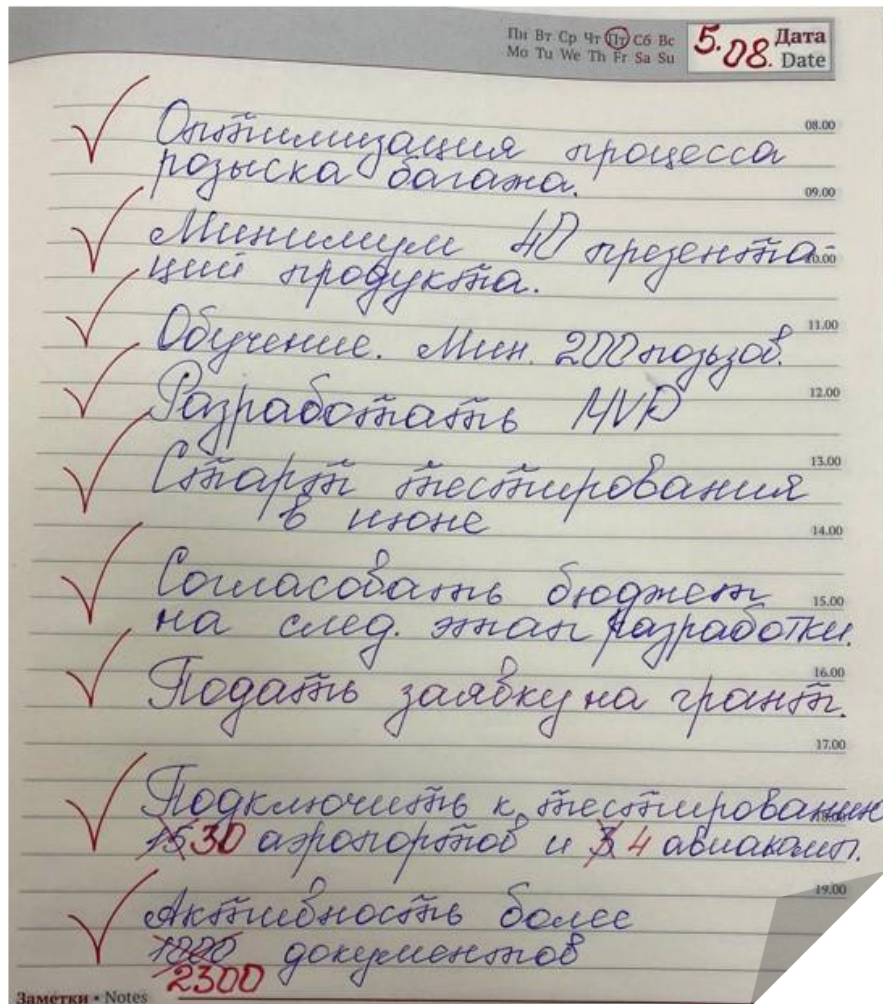 Пн Вт Ср Чт Пт Сб Вс
Mo Tu We Th Fr Sa Su
5.08. Дата
Date
08.00
Оптимизация процесса
розыска багажа.
09.00
Минимум 40 презента-
10.00
ций продукта.
11.00
Обучение. Мин. 200 пользов.
12.00
Разработать MVP
13.00
Старт тестирования
в июне
14.00
Согласовать бюджет
15.00
на след. этап разработки.
16.00
Подать заявку на грант.
17.00
Подключить к тестированию
18.00
15 30 аэропортов и 3 4 авиакомп.
19.00
Активность более
1000 документов
2300
Заметки • Notes